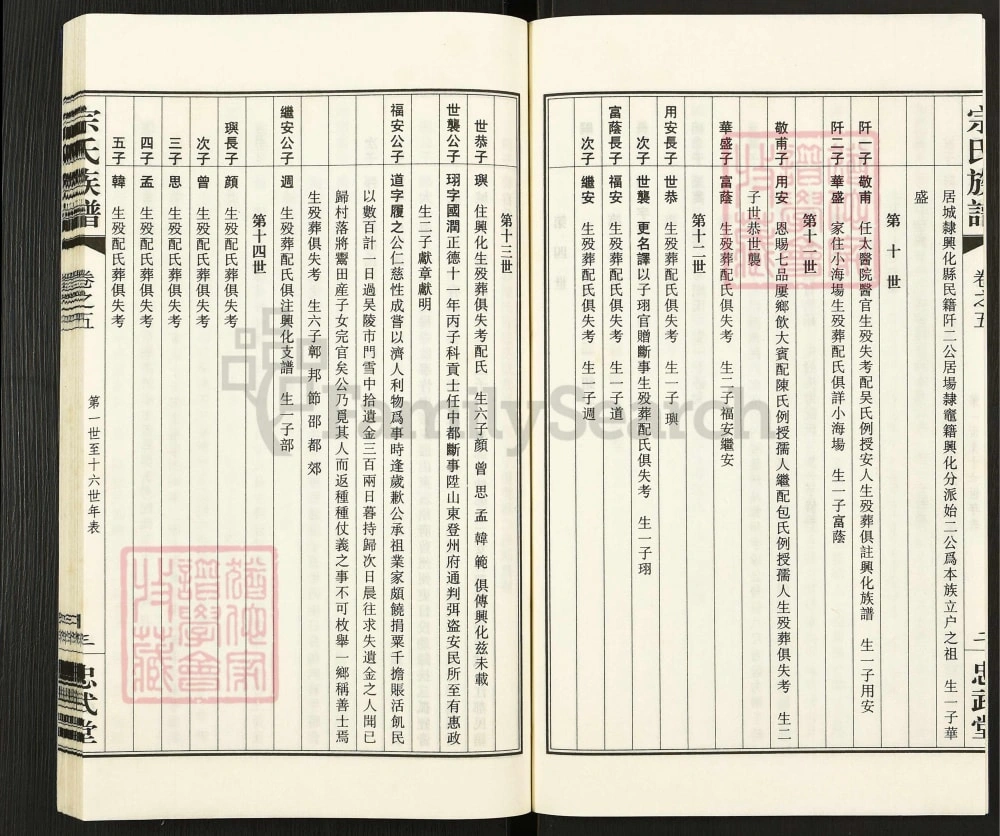 宗氏族譜
卷之五
二
忠武堂
居城隸興化縣民籍阡二公居場隸竈籍興化分派始二公爲本族立户之祖　生一子華
盛
第十世
阡一子　敬甫　任太醫院醫官生殁失考配吴氏例授安人生殁葬俱註興化族譜　生一子用安
阡二子　華盛　家住小海場生殁葬配氏俱詳小海場　生一子富蔭
第十一世
敬甫子　用安　恩賜七品屢鄉飲大賓配陳氏例授孺人繼配包氏例授孺人生殁葬俱失考　生二
子世恭世襲
華盛子　富蔭　生殁葬配氏俱失考　生二子福安繼安
第十二世
用安長子　世恭　生殁葬配氏俱失考　生一子璵
次子　世襲　更名譯以子珝官贈斷事生殁葬配氏俱失考　生一子珝
富蔭長子　福安　生殁葬配氏俱失考　生一子道
次子　繼安　生殁葬配氏俱失考　生一子週
第十三世
世恭子　璵　住興化生殁葬俱失考配氏　生六子顔　曾　思　孟　韓　範　俱傳興化兹未載
世襲公子　珝字國潤正德十一年丙子科貢士任中都斷事陞山東登州府通判弭盗安民所至有惠政
生二子獻章獻明
福安公子　道字履之公仁慈性成嘗以濟人利物爲事時逢歲歉公承祖業家頗饒捐粟千擔賑活飢民
以數百計一日過吴陵市門雪中拾遺金三百兩日暮持歸次日晨往求失遺金之人聞已
歸村落將鬻田産子女完官矣公乃覓其人而返種種仗義之事不可枚舉一鄉稱善士焉
生殁葬俱失考　生六子鄣　邦　節　邵　都　郊
繼安公子　週　生殁葬配氏俱注興化支譜　生一子部
第十四世
璵長子　顔　生殁配氏葬俱失考
次子　曾　生殁配氏葬俱失考
三子　思　生殁配氏葬俱失考
四子　孟　生殁配氏葬俱失考
五子　韓　生殁配氏葬俱失考
宗氏族譜
卷之五
第一世至十六世年表
三
忠武堂
FamilySearch